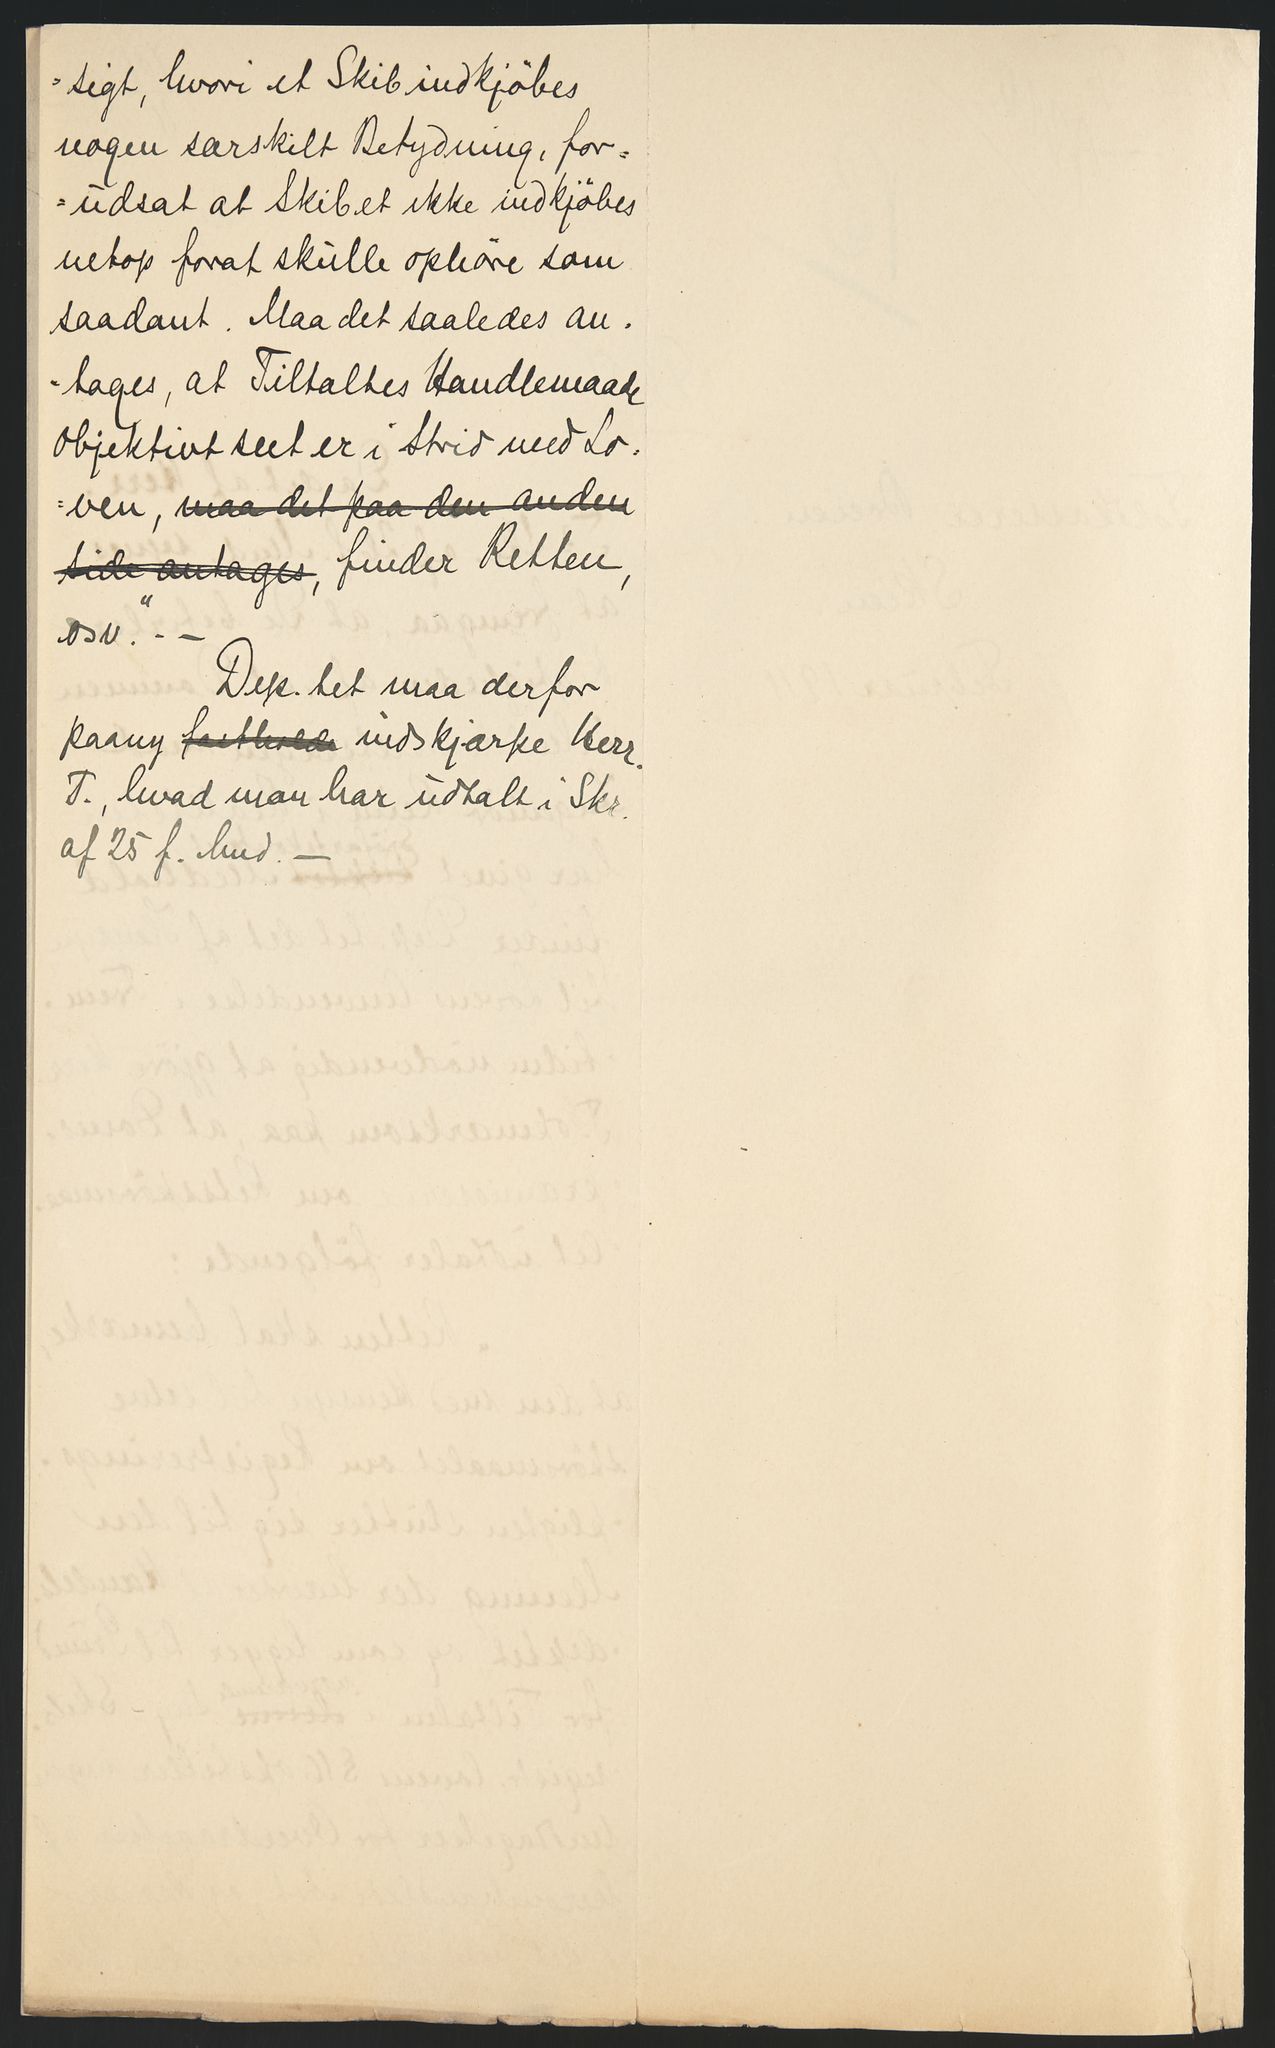 =sigt, hvori et Skib indkjöbes
nogen særskilt Betydning, for=
=udsat at Skibet ikke indkjöbes
netop forat skulle ophöre som
saadant. Maa det saaledes an-
-tages, at Tiltaltes Handlemaade
objektivt seet er i Strid med Lo-
=ven, maa det paa den anden
side antages, finder Retten,
osv." - —
Dep.tet maa derfor
paany fastholde indskjærpe Herr
T., hvad man har udtalt i Skr.
af 25 f. Md. —